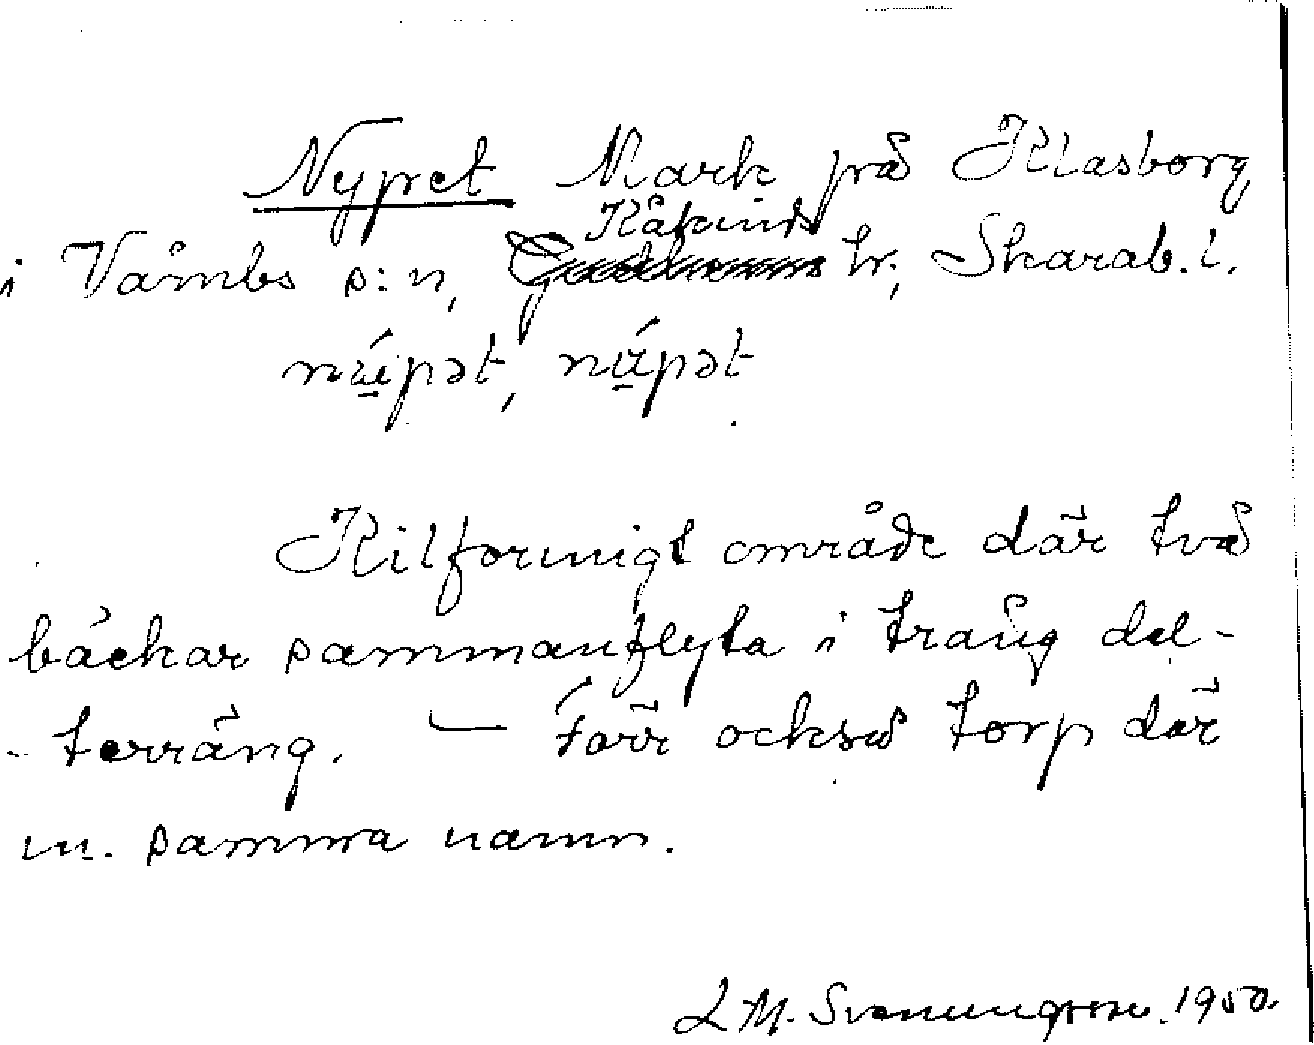 Nypet Mark på Klasborg
Kåkinds
i Våmbs s:n, Gudhems hr., Skarab. l.
nýpət, nýpət
Kilformigt område där två
bäckar sammanflyta i trång dal-
-terräng. — Förr också torp där
m. samma namn.
L M. Svenungsson. 1950.